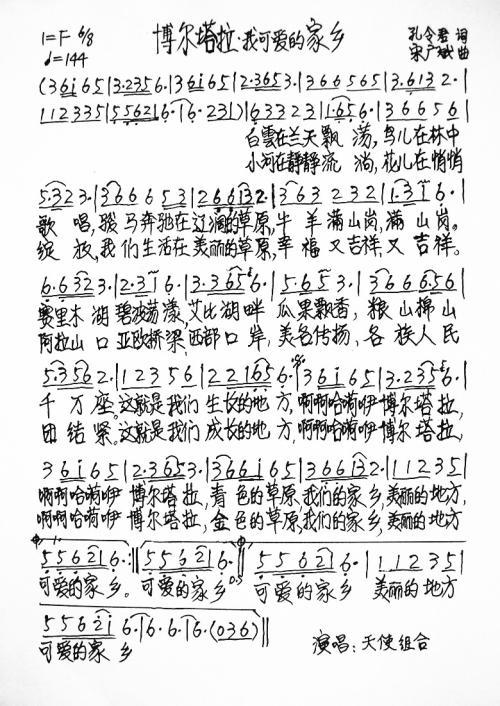 1=F 6/8 博尔塔拉·我可爱的家乡 孔令君 词
♩=144 宋广斌 曲
(36i65|3·235 6·|36i65|2·365 3·|366565|3·613 2·|
112335|55621|6·|6·231)|633323|1·65 6·|366656|
白雲在兰天飘荡,鸟儿在林中
小河在静静流淌,花儿在悄悄
5·323·|366653|266132·|363232|1·316·|
歌唱,骏马奔驰在辽阔的草原,牛羊满山岗,满山岗。
绽放,我们生活在美丽的草原,幸福又吉祥,又吉祥。
6·6323·|2·316·|3·3656·|5·653·|3666561|
赛里木湖碧波荡漾,艾比湖畔瓜果飘香,粮山棉山
阿拉山口亚欧桥梁,西部口岸,美名传扬、各族人民
5·3562·|12356|221656·|36i65|3·2356·|
千万座。这就是我们生长的地方,啊啊哈嗬咿博尔塔拉,
团结紧。这就是我们成长的地方,啊啊哈嗬咿博尔塔拉,
36i65|2·3653·|366i65|366132·|11235|
啊啊哈嗬咿博尔塔拉,青色的草原,我们的家乡,美丽的地方,
啊啊哈嗬咿博尔塔拉,金色的草原,我们的家乡,美丽的地方
556216·:‖556216·‖556216·|112351|
可爱的家乡。可爱的家乡 D.S 可爱的家乡 美丽的地方
5562i 6·|6·6·|6·(036)‖
可爱的家乡 演唱:天使组合